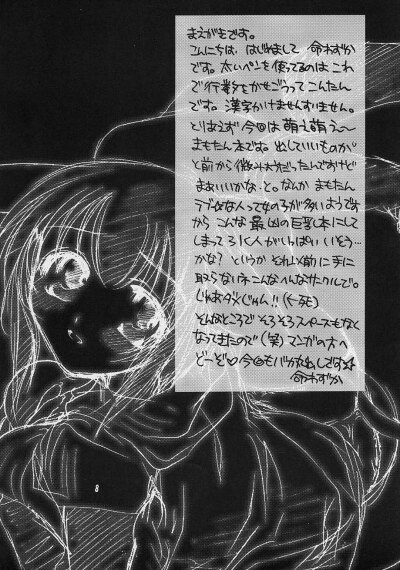 まえがきです。
こんにちは、はじめまして 命わずか
です。太いペンを使ってるのは これ
で行数をかせごうってこんたん
です。漢字かけませんすいません。
とりあえず 今回は 萌え萌え〜
まもたん本です。出していいものか
と前から微妙だったんですけど
まぁいいかな、と。なんか まもたん
ラブな人って女の子が多いようです
から こんな 最凶の巨乳本にして
しまって ろく人がいっぱいいそう…
かな? というか それ以前に手に
取らないネこんなへんなサークルで。
じゃあダメじゃん!!(←死)
そんなところで そろそろスペースもなく
なってきたので(笑)マンガの方へ
ど〜ぞ♡今回もバカ丸出しです☆
命わずか
8